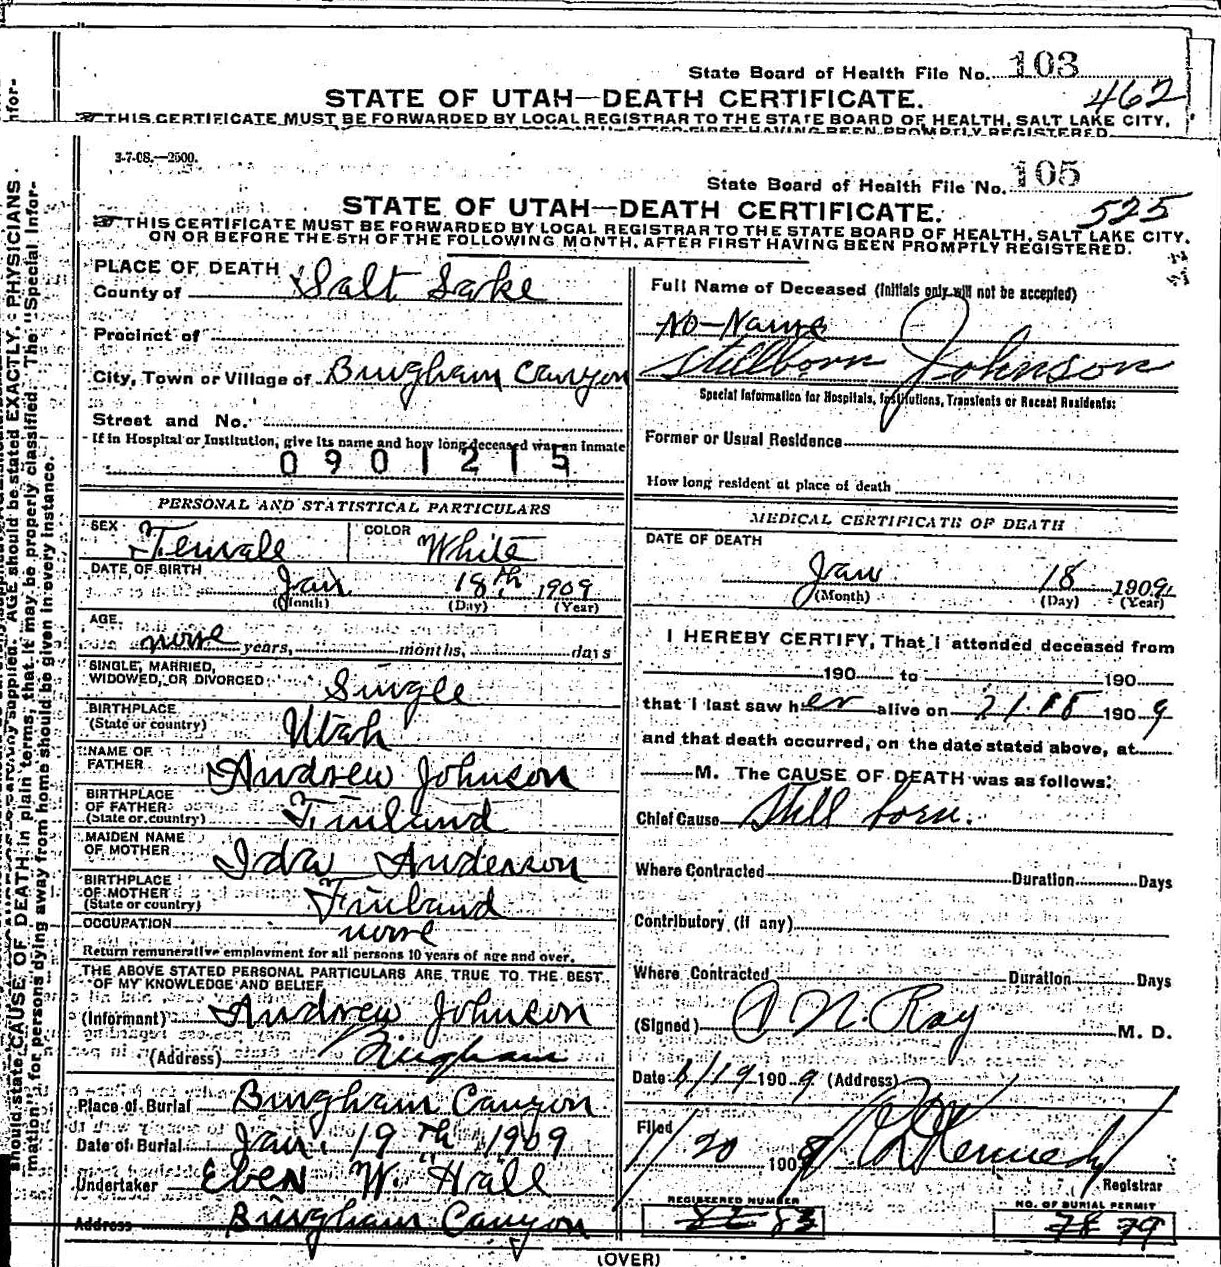 State Board of Health File No. 103
STATE OF UTAH—DEATH CERTIFICATE.
462
THIS CERTIFICATE MUST BE FORWARDED BY LOCAL REGISTRAR TO THE STATE BOARD OF HEALTH, SALT LAKE CITY,
3-7-08.—2500.
State Board of Health File No. 105
STATE OF UTAH—DEATH CERTIFICATE.
525
THIS CERTIFICATE MUST BE FORWARDED BY LOCAL REGISTRAR TO THE STATE BOARD OF HEALTH, SALT LAKE CITY,
ON OR BEFORE THE 5TH OF THE FOLLOWING MONTH, AFTER FIRST HAVING BEEN PROMPTLY REGISTERED.
PLACE OF DEATH
County of Salt Lake
Precinct of
City, Town or Village of Bingham Canyon
Street and No.
If in Hospital or Institution, give its name and how long deceased was an inmate
0901215
PERSONAL AND STATISTICAL PARTICULARS
SEX Female COLOR White
DATE OF BIRTH Jan 18th 1909
(Month) (Day) (Year)
AGE. none years, months, days
SINGLE, MARRIED,
WIDOWED, OR DIVORCED Single
BIRTHPLACE
(State or country) Utah
NAME OF
FATHER Andrew Johnson
BIRTHPLACE
OF FATHER
(State or country) Finland
MAIDEN NAME
OF MOTHER Ida Anderson
BIRTHPLACE
OF MOTHER
(State or country) Finland
OCCUPATION none
Return remunerative employment for all persons 10 years of age and over.
THE ABOVE STATED PERSONAL PARTICULARS ARE TRUE TO THE BEST
OF MY KNOWLEDGE AND BELIEF
(Informant) Andrew Johnson
(Address) Bingham
Place of Burial Bingham Canyon
Date of Burial Jan. 19th 1909
Undertaker Eben W. Hall
Address Bingham Canyon
Full Name of Deceased (Initials only will not be accepted)
No-Name
Stillborn Johnson
Special Information for Hospitals, Institutions, Transients or Recent Residents:
Former or Usual Residence
How long resident at place of death
MEDICAL CERTIFICATE OF DEATH
DATE OF DEATH
Jan 18 1909
(Month) (Day) (Year)
I HEREBY CERTIFY, That I attended deceased from
190 to 190
that I last saw her alive on 1909
and that death occurred, on the date stated above, at
M. The CAUSE OF DEATH was as follows:
Chief Cause Still born.
Where Contracted Duration Days
Contributory (if any)
Where Contracted Duration Days
(Signed) N. Ray M. D.
Date 1/19 1909 (Address)
Filed
1/20 1909 Kennedy
Registrar
REGISTERED NUMBER
NO. OF BURIAL PERMIT
78 79
(OVER)
should state CAUSE OF DEATH in plain terms, that it may be properly classified. The "Special Infor-
mation" for persons dying away from home should be given in every instance.
supplied. AGE should be stated EXACTLY. PHYSICIANS